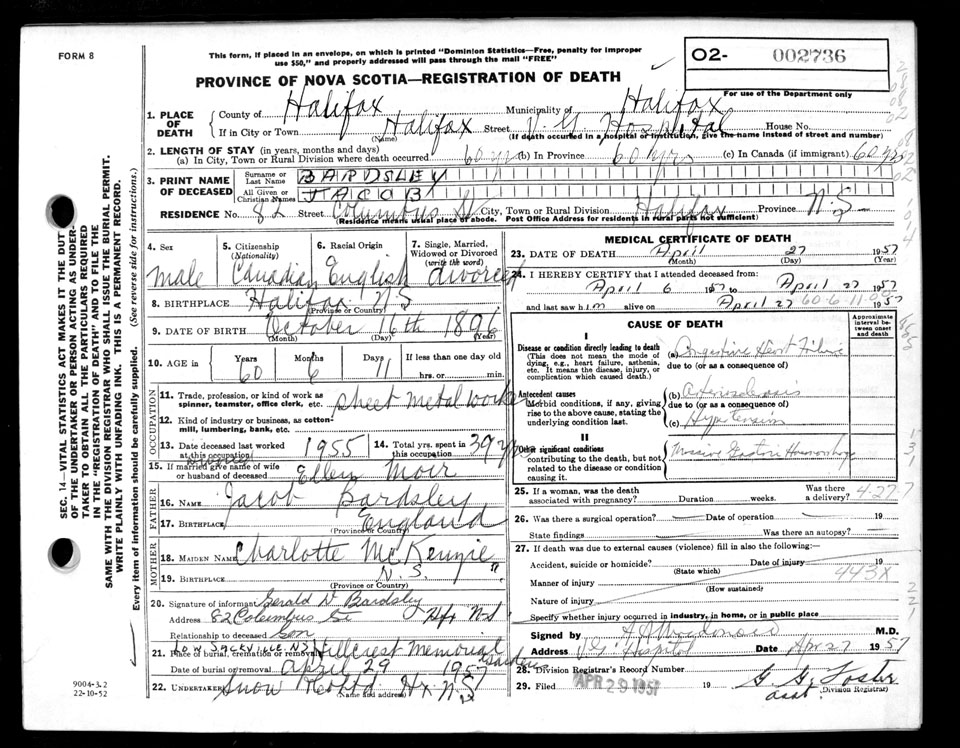 FORM 8
This form, if placed in an envelope, on which is printed "Dominion Statistics—Free, penalty for improper
use $50," and properly addressed will pass through the mail "FREE"
O2- 002736
For use of the Department only
PROVINCE OF NOVA SCOTIA—REGISTRATION OF DEATH
SEC. 14—VITAL STATISTICS ACT MAKES IT THE DUTY
OF THE UNDERTAKER OR PERSON ACTING AS UNDER-
TAKER TO OBTAIN ALL THE PARTICULARS REQUIRED
IN THE "REGISTRATION OF DEATH" AND TO FILE THE
SAME WITH THE DIVISION REGISTRAR WHO SHALL ISSUE THE BURIAL PERMIT.
WRITE PLAINLY WITH UNFADING INK. THIS IS A PERMANENT RECORD.
Every item of information should be carefully supplied. (See reverse side for instructions.)
1. PLACE OF DEATH
County of Halifax Municipality of Halifax
If in City or Town Halifax Street V. G. Hospital House No.
(Name) (If death occurred in a hospital or institution, give the name instead of street and number)
2. LENGTH OF STAY (in years, months and days)
(a) In City, Town or Rural Division where death occurred 60 yrs (b) In Province 60 yrs (c) In Canada (if immigrant) 60 yrs
3. PRINT NAME OF DECEASED
Surname or Last Name BARDSLEY
All Given or Christian Names JACOB
RESIDENCE No. 82 Street Columbus St City, Town or Rural Division Halifax Province N.S.
(Residence means usual place of abode. Post Office Address for residents in rural parts not sufficient)
4. Sex 5. Citizenship (Nationality) 6. Racial Origin 7. Single, Married, Widowed or Divorced (write the word)
male Canadian English divorced
8. BIRTHPLACE Halifax N.S
(Province or Country)
9. DATE OF BIRTH October 16th 1896
(Month) (Day) (Year)
10. AGE in Years Months Days If less than one day old
60 6 11 hrs. or min.
OCCUPATION
11. Trade, profession, or kind of work as
spinner, teamster, office clerk, etc. sheet metal worker
12. Kind of industry or business, as cotton-
mill, lumbering, bank, etc.
13. Date deceased last worked
at this occupation 1955 14. Total yrs. spent in this occupation 39 yrs
15. If married give name of wife
or husband of deceased Ellen Moir
FATHER
16. NAME Jacob Bardsley
17. BIRTHPLACE England
(Province or Country)
MOTHER
18. MAIDEN NAME Charlotte McKenzie
19. BIRTHPLACE N.S.
(Province or Country)
20. Signature of informant Gerald W Bardsley
Address 82 Columbus St Hfx N.S
Relationship to deceased Son
21. Place of burial, cremation or removal Low Sackville N.S Hillcrest Memorial Garden
Date of burial or removal April 29 1957
22. UNDERTAKER Snow & Co Ltd Hx N.S
(Name and address)
9004-3.2
22-10-52
MEDICAL CERTIFICATE OF DEATH
23. DATE OF DEATH April 27 1957
(Month) (Day) (Year)
24. I HEREBY CERTIFY that I attended deceased from:
April 6 1957 to April 27 1957
and last saw h im alive on April 27 1957
60-6-11-0
CAUSE OF DEATH
Approximate interval between onset and death
I
Disease or condition directly leading to death
(This does not mean the mode of
dying, e.g., heart failure, asthenia,
etc. It means the disease, injury, or
complication which caused death.)
(a) Congestive Heart Failure
due to (or as a consequence of)
Antecedent causes
Morbid conditions, if any, giving
rise to the above cause, stating the
underlying condition last.
(b) Arteriosclerosis
due to (or as a consequence of)
(c) Hypertension
II
Other significant conditions
contributing to the death, but not
related to the disease or condition
causing it.
Massive Gastric Hemorrhage
25. If a woman, was the death
associated with pregnancy? Duration weeks. Was there a delivery?
4-27-7
26. Was there a surgical operation? Date of operation 19
State findings Was there an autopsy?
27. If death was due to external causes (violence) fill in also the following:—
Accident, suicide or homicide? Date of injury 19
(State which)
443X
Manner of injury
(How sustained)
Nature of injury
Specify whether injury occurred in industry, in home, or in public place
Signed by M.D.
Address V.G. Hospital Date Apr 27 1957
28. Division Registrar's Record Number
29. Filed APR 29 1957 19 G. G. Foster
asst. (Division Registrar)